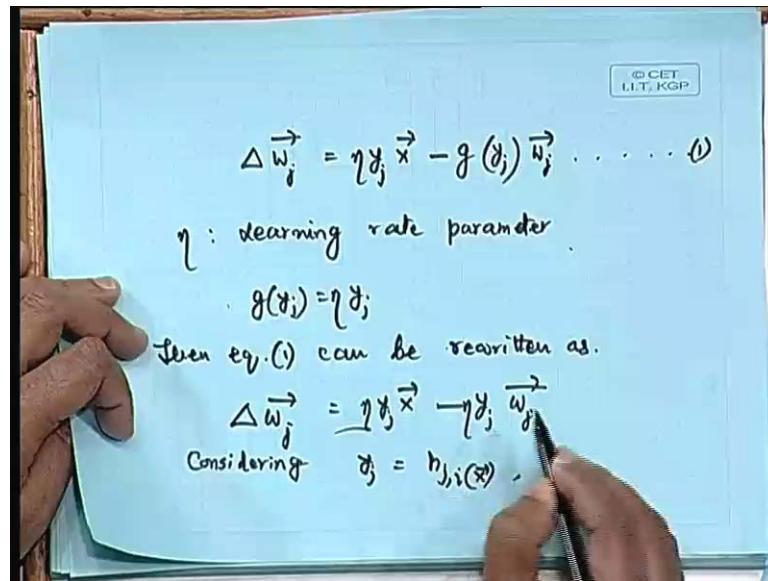 © CET
I.I.T, KGP
Δ w⃗_j = η y_j x⃗ − g(y_j) w⃗_j ...... (1)
η : Learning rate parameter.
g(y_j) = η y_j
Then eq.(1) can be rewritten as.
Δ w⃗_j = η y_j x⃗ − η y_j w⃗_j
Considering y_j = h_{j,i(x⃗)}.